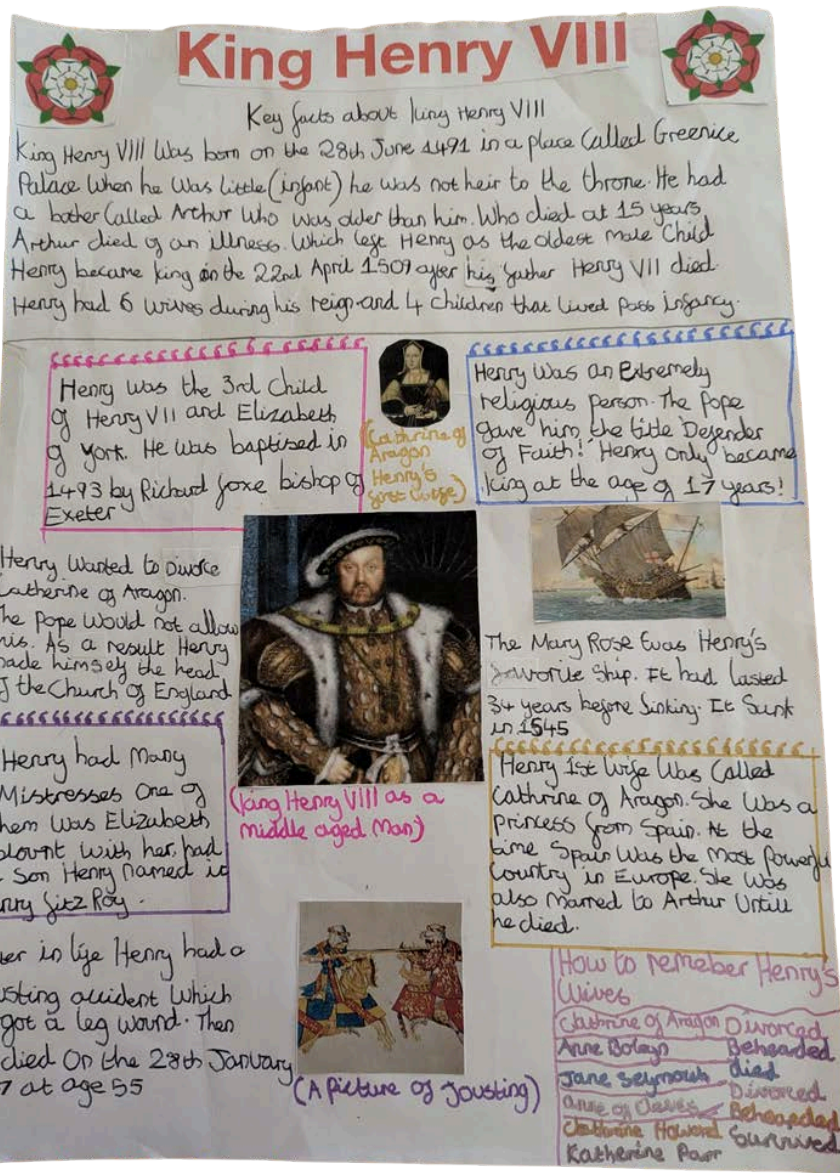 King Henry VIII
Key facts about King Henry VIII
King Henry VIII Was born on the 28th June 1491 in a place Called Greenice
Palace When he Was little (infant) he was not heir to the throne. He had
a bother Called Arthur Who was older than him. Who died at 15 years
Arthur died of an illness. Which left Henry as the oldest male Child
Henry became king on the 22nd April 1509 after his father Henry VII died.
Henry had 6 wives during his reign and 4 children that lived pass infancy.
Henry Was the 3rd Child
of Henry VII and Elizabeth
of York. He Was baptised in
1493 by Richard foxe bishop of
Exeter
(Cathrine of
Aragon
Henry's
first wife)
Henry Was an Extremely
religious person. The Pope
gave him the title Defender
of Faith! Henry Only became
king at the age of 17 years!
Henry Wanted to Divorce
Catherine of Aragon.
he Pope Would not allow
his. As a result Henry
ade himself the head
f the Church of England
The Mary Rose Was Henry's
favorite Ship. It had lasted
34 years before Sinking. It Sunk
in 1545
Henry had Many
Mistresses One of
hem Was Elizabeth
blount With her, had
Son Henry named
nry fitz Roy.
(King Henry VIII as a
middle aged Man)
Henry 1st Wife Was Called
Cathrine of Aragon. She Was a
Princess from Spain. At the
time Spain Was the Most Powerfu
Country in Europe. She Was
also Married to Arthur Untill
he died.
er in life Henry had a
usting accident Which
got a leg wound. Then
died On the 28th January
7 at age 55
(A Picture of Jousting)
How to remeber Henry's
Wives
Cathrine of Aragon Divorced
Anne Boleyn Beheaded
Jane Seymour died
anne of Cleves Divorced
Catherine Howard Beheaded
Katherine Parr Survived